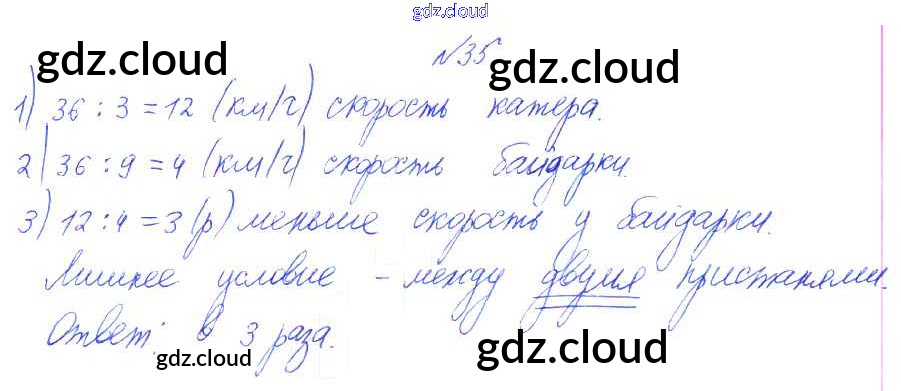 gdz.cloud
№35
gdz.cloud gdz.cloud
1) 36 : 3 = 12 (км/ч) скорость катера.
2) 36 : 9 = 4 (км/ч) скорость байдарки.
3) 12 : 4 = 3 (р) меньше скорость у байдарки.
Лишнее условие - между двумя пристанями.
Ответ: в 3 раза.
gdz.cloud gdz.cloud